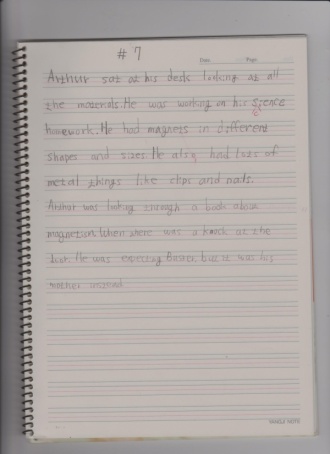 # 7
Date Page
Arthur sat at his desk looking at all
the materials. He was working on his science
homework. He had magnets in different
shapes and sizes. He also had lots of
metal things like clips and nails.
Arthur was looking through a book about
magnetism. When there was a knock at the
door. He was expecting Buster, but it was his
mother instead